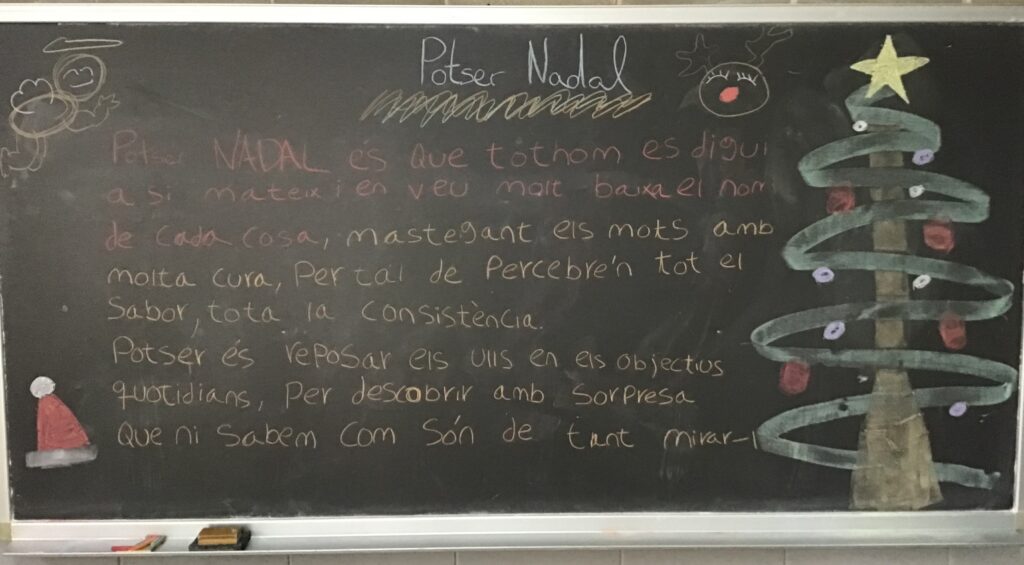 Potser Nadal
Potser NADAL és que tothom es digui
a si mateix i en veu molt baixa el nom
de cada cosa, mastegant els mots amb
molta cura, per tal de percebre'n tot el
sabor, tota la consistència.
Potser és reposar els ulls en els objectius
quotidians, per descobrir amb sorpresa
que ni sabem com són de tant mirar-l